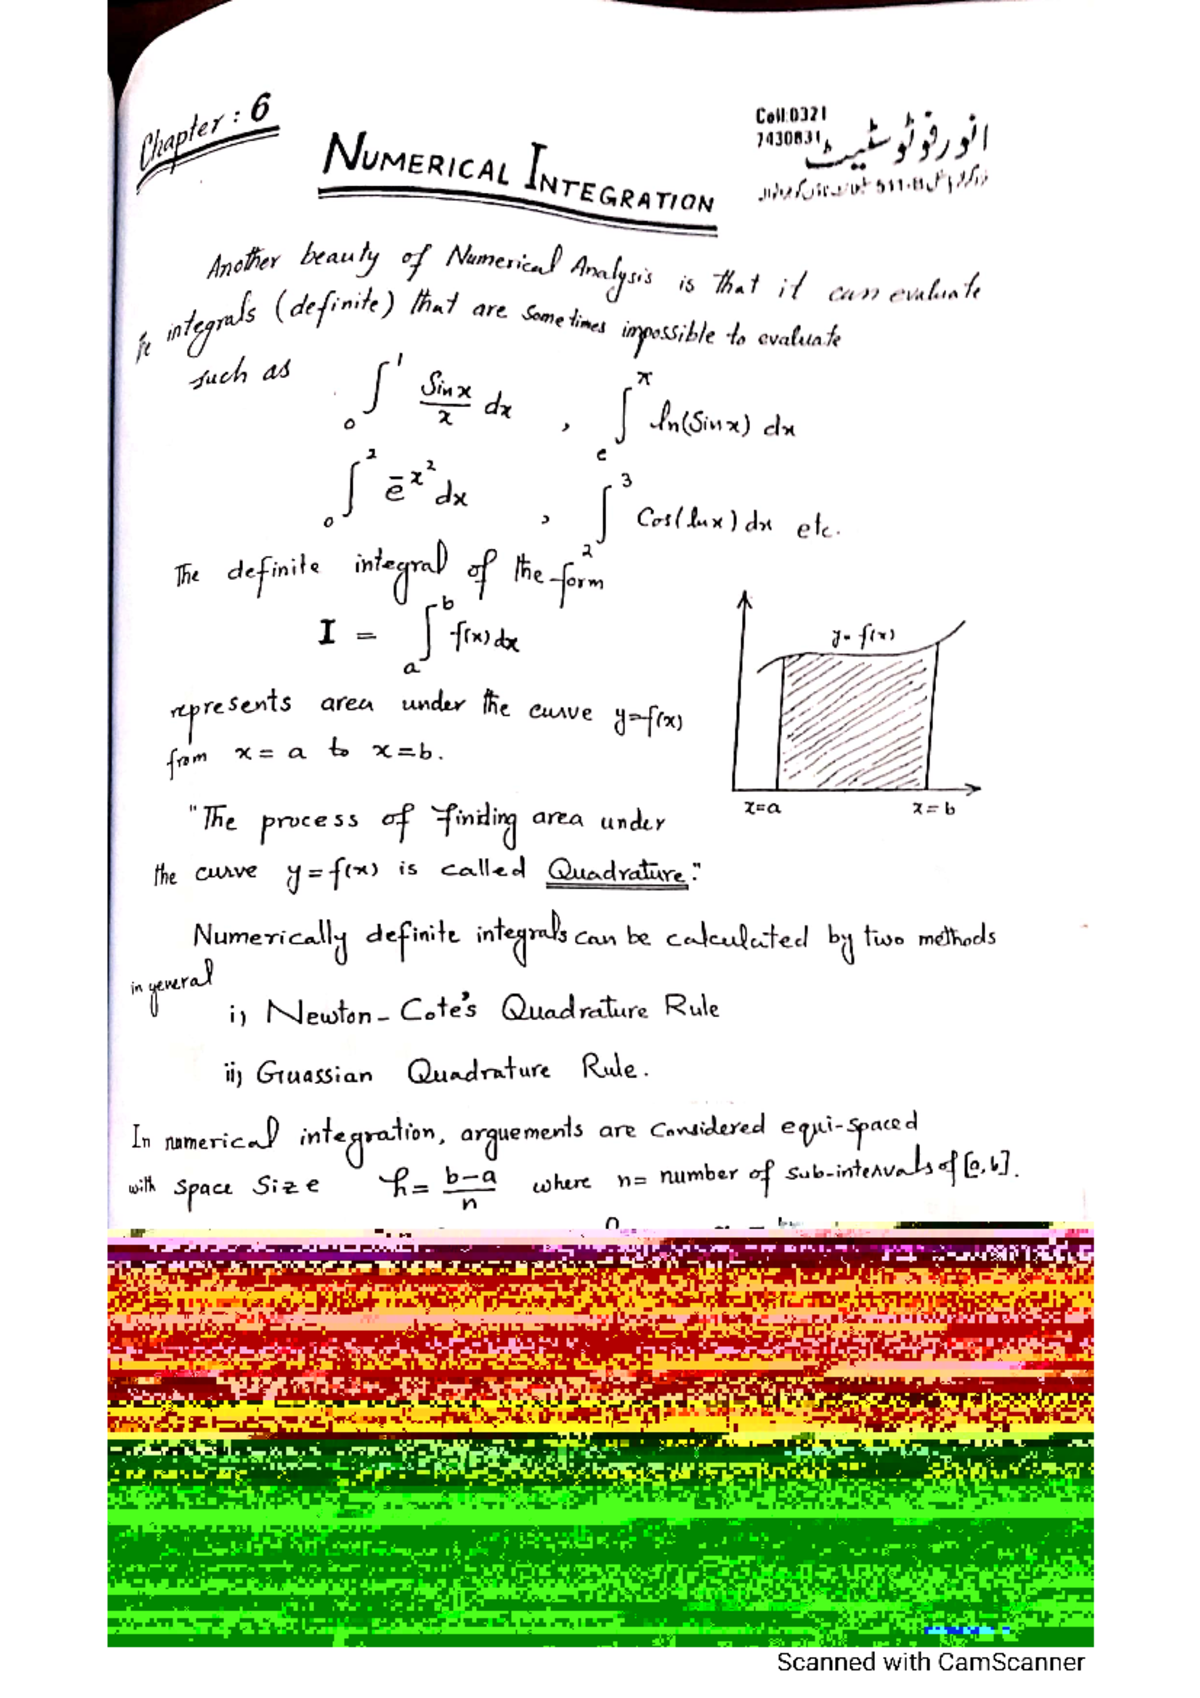 Chapter: 6
Cell:0321
7430831
انور فوٹوسٹیٹ
NUMERICAL INTEGRATION
Another beauty of Numerical Analysis is that it can evaluate
integrals (definite) that are sometimes impossible to evaluate
such as ∫₀¹ Sinx/x dx , ∫ₑ^π ln(Sinx) dx
∫₀² e^-x² dx , ∫₂³ Cos(lnx) dx etc.
The definite integral of the form
I = ∫ₐᵇ f(x) dx
y=f(x)
represents area under the curve y=f(x)
from x = a to x = b.
x=a x=b
"The process of finding area under
the curve y = f(x) is called Quadrature."
Numerically definite integrals can be calculated by two methods
in general
i) Newton-Cote's Quadrature Rule
ii) Guassian Quadrature Rule.
In numerical integration, arguements are considered equi-spaced
with space size h = b-a/n where n= number of sub-intervals of [a,b].
Scanned with CamScanner